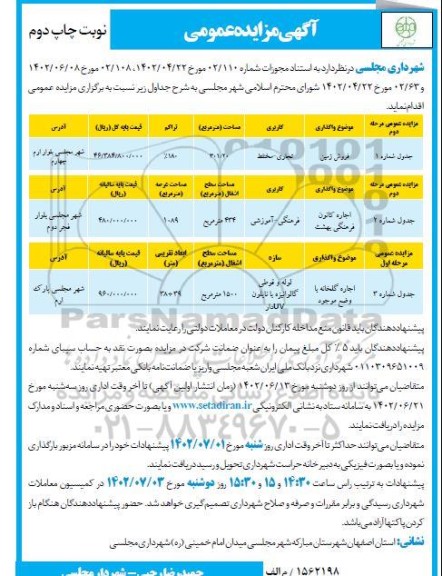 آگهی مزایده عمومی
نوبت چاپ دوم
شهرداری مجلسی در نظر دارد به استناد مجوزات شماره ۰۲/۱۱۰ مورخ ۱۴۰۲/۰۴/۲۲، ۰۲/۱۰۸ مورخ ۱۴۰۲/۰۶/۰۸
و ۰۲/۶۳ مورخ ۱۴۰۲/۰۴/۲۲ شورای محترم اسلامی شهر مجلسی به شرح جداول زیر نسبت به برگزاری مزایده عمومی
اقدام نماید.
مزایده عمومی مرحله دوم | موضوع واگذاری | کاربری | مساحت (مترمربع) | تراکم | قیمت پایه کل (ریال) | آدرس
جدول شماره ۱ | فروش زمین | تجاری -مختلط | ۳۰۱/۲۰ | ۱۸۰٪ | ۴۶/۳۸۴/۸۰۰/۰۰۰ | شهر مجلسی بلوار ارم چهارم
مزایده عمومی مرحله دوم | موضوع واگذاری | کاربری | مساحت سطح اشتغال (مترمربع) | مساحت عرصه (مترمربع) | قیمت پایه سالیانه (ریال) | آدرس
جدول شماره ۲ | اجاره کانون فرهنگی بهشت | فرهنگی -آموزشی | ۴۳۴ مترمربع | ۱۰۸۹ | ۴۸۰/۰۰۰/۰۰۰ | شهر مجلسی بلوار فجر دوم
مزایده عمومی مرحله اول | موضوع واگذاری | سازه | مساحت سطح اشتغال (مترمربع) | ابعاد تقریبی (متر) | قیمت پایه سالیانه (ریال) | آدرس
جدول شماره ۳ | اجاره گلخانه با وضع موجود | لوله و قوطی گالوانیزه با نایلون UVدار | ۱۵۰۰ مترمربع | ۳۹*۳۸ | ۹۶۰/۰۰۰/۰۰۰ | شهر مجلسی پارک ارم
پیشنهاددهندگان باید قانون منع مداخله کارکنان دولت در معاملات دولتی را رعایت نمایند.
پیشنهاددهندگان باید ۵٪ کل مبلغ پیمان را به عنوان ضمانت شرکت در مزایده بصورت نقد به حساب سیبای شماره
۰۱۱۰۳۰۹۶۵۱۰۰۹ شهرداری نزد بانک ملی ایران شعبه مجلسی واریز یا ضمانت‌نامه بانکی معتبر تهیه نمایند.
متقاضیان می‌توانند از روز دوشنبه مورخ ۱۴۰۲/۰۶/۱۳ (زمان انتشار اولین آگهی) تا آخر وقت اداری روز سه‌شنبه مورخ
۱۴۰۲/۰۶/۲۱ به سامانه ستاد به نشانی الکترونیکی www.setadiran.ir و یا بصورت حضوری مراجعه و اسناد و مدارک
مزایده را دریافت نمایند.
متقاضیان می‌توانند حداکثر تا آخر وقت اداری روز شنبه مورخ ۱۴۰۲/۰۷/۰۱ پیشنهادات خود را در سامانه مزبور بارگذاری
نموده و یا بصورت فیزیکی به دبیرخانه حراست شهرداری تحویل و رسید دریافت نمایند.
پیشنهادات به ترتیب راس ساعت ۱۴:۳۰ و ۱۵ و ۱۵:۳۰ روز دوشنبه مورخ ۱۴۰۲/۰۷/۰۳ در کمیسیون معاملات
شهرداری رسیدگی و برابر مقررات و صرفه و صلاح شهرداری تصمیم گیری خواهد شد. حضور پیشنهاددهندگان هنگام باز
کردن پاکتها آزاد می‌باشد.
نشانی: استان اصفهان شهرستان مبارکه شهر مجلسی میدان امام خمینی (ره) شهرداری مجلسی
۱۵۶۲۱۹۸ / م الف
حمیدرضا رجبی – شهردار مجلسی
ParsNamadData
۰۲۱-۸۸۳۴۹۶۷۰-۵